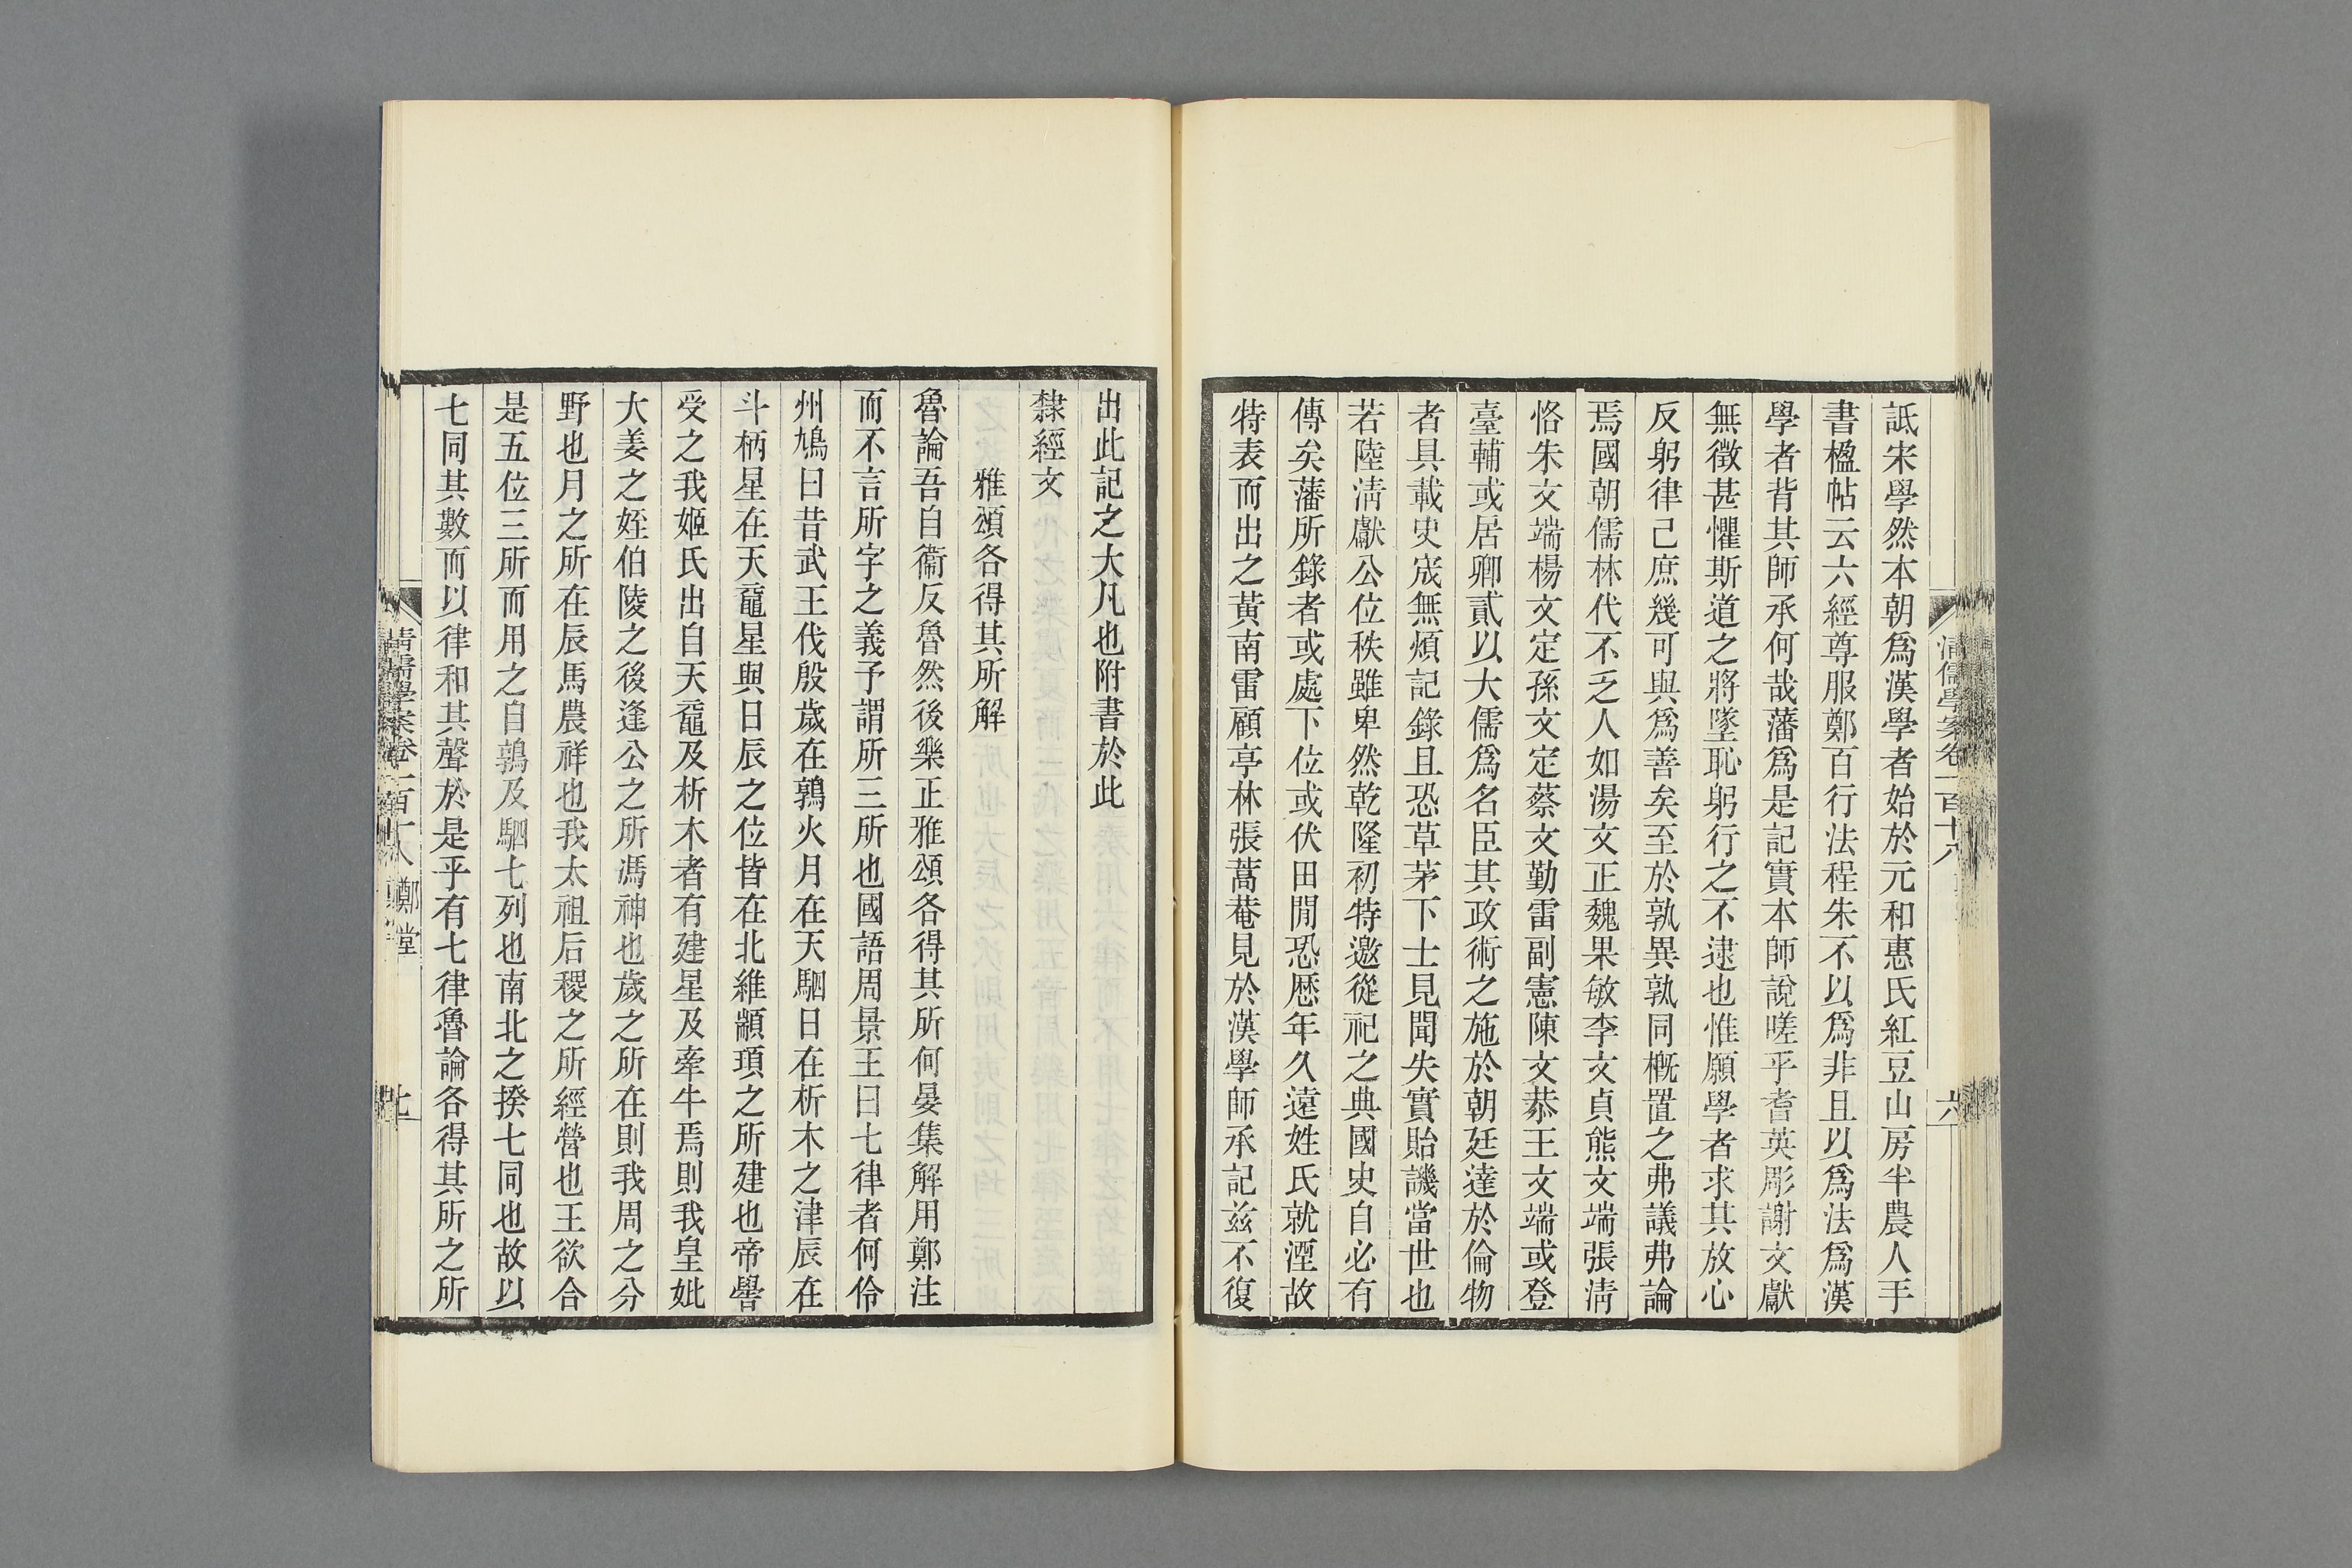 詆宋學然本朝爲漢學者始於元和惠氏紅豆山房半農人手
書楹帖云六經尊服鄭百行法程朱不以爲非且以爲法爲漢
學者背其師承何哉藩爲是記實本師說嗟乎耆英彫謝文獻
無徵甚懼斯道之將墜恥躬行之不逮也惟願學者求其放心
反躬律己庶幾可與爲善矣至於孰異孰同概置之弗議弗論
焉國朝儒林代不乏人如湯文正魏果敏李文貞熊文端張淸
恪朱文端楊文定孫文定蔡文勤雷副憲陳文恭王文端或登
臺輔或居卿貳以大儒爲名臣其政術之施於朝廷達於倫物
者具載史宬無煩記錄且恐草茅下士見聞失實貽譏當世也
若陸淸獻公位秩雖卑然乾隆初特邀從祀之典國史自必有
傳矣藩所錄者或處下位或伏田閒恐歷年久遠姓氏就湮故
特表而出之黃南雷顧亭林張蒿菴見於漢學師承記茲不復
淸儒學案卷一百十八
六
出此記之大凡也附書於此
隸經文
雅頌各得其所解
魯論吾自衞反魯然後樂正雅頌各得其所何晏集解用鄭注
而不言所字之義予謂所三所也國語周景王曰七律者何伶
州鳩曰昔武王伐殷歲在鶉火月在天駟日在析木之津辰在
斗柄星在天黿星與日辰之位皆在北維顓頊之所建也帝嚳
受之我姬氏出自天黿及析木者有建星及牽牛焉則我皇妣
大姜之姪伯陵之後逢公之所馮神也歲之所在則我周之分
野也月之所在辰馬農祥也我太祖后稷之所經營也王欲合
是五位三所而用之自鶉及駟七列也南北之揆七同也故以
七同其數而以律和其聲於是乎有七律魯論各得其所之所
淸儒學案卷一百十八 鄭堂
七